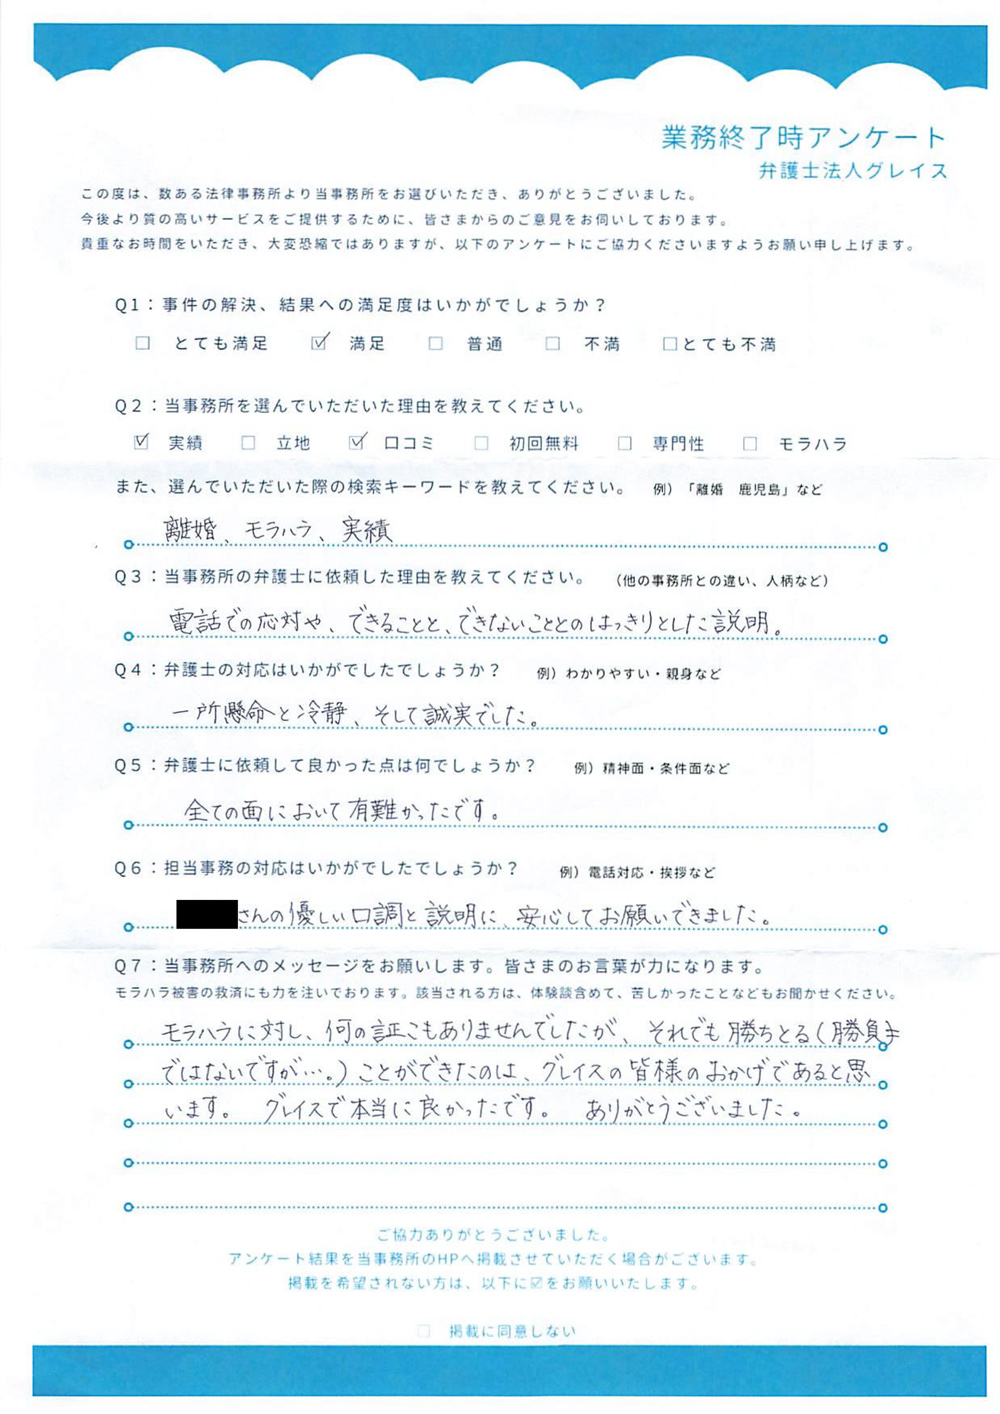 業務終了時アンケート
弁護士法人グレイス
この度は、数ある法律事務所より当事務所をお選びいただき、ありがとうございました。
今後より質の高いサービスをご提供するために、皆さまからのご意見をお伺いしております。
貴重なお時間をいただき、大変恐縮ではありますが、以下のアンケートにご協力くださいますようお願い申し上げます。
Q1：事件の解決、結果への満足度はいかがでしょうか？
☐ とても満足 ☑ 満足 ☐ 普通 ☐ 不満 ☐とても不満
Q2：当事務所を選んでいただいた理由を教えてください。
☑ 実績 ☐ 立地 ☑ 口コミ ☐ 初回無料 ☐ 専門性 ☐ モラハラ
また、選んでいただいた際の検索キーワードを教えてください。 例）「離婚 鹿児島」など
離婚、モラハラ、実績
Q3：当事務所の弁護士に依頼した理由を教えてください。 （他の事務所との違い、人柄など）
電話での応対や、できることと、できないこととのはっきりとした説明。
Q4：弁護士の対応はいかがでしたでしょうか？ 例）わかりやすい・親身など
一所懸命と冷静、そして誠実でした。
Q5：弁護士に依頼して良かった点は何でしょうか？ 例）精神面・条件面など
全ての面において有難かったです。
Q6：担当事務の対応はいかがでしたでしょうか？ 例）電話対応・挨拶など
さんの優しい口調と説明に、安心してお願いできました。
Q7：当事務所へのメッセージをお願いします。皆さまのお言葉が力になります。
モラハラ被害の救済にも力を注いでおります。該当される方は、体験談含めて、苦しかったことなどもお聞かせください。
モラハラに対し、何の証こもありませんでしたが、それでも勝ちとる（勝負事
ではないですが…。）ことができたのは、グレイスの皆様のおかげであると思
います。 グレイスで本当に良かったです。 ありがとうございました。
ご協力ありがとうございました。
アンケート結果を当事務所のHPへ掲載させていただく場合がございます。
掲載を希望されない方は、以下に☑をお願いいたします。
☐ 掲載に同意しない